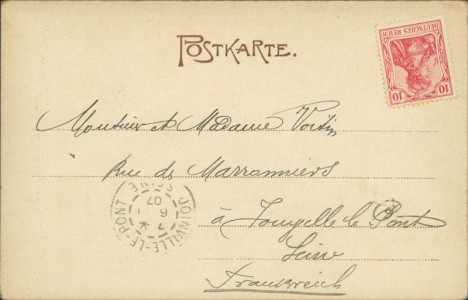 POSTKARTE.
DEUTSCHES REICH
10 10
Monsieur et Madame Voisin
Rue de Marronniers
à Joinville le Pont
Seine
Frankreich
JOINVILLE-LE-PONT
SEINE
7
6
07